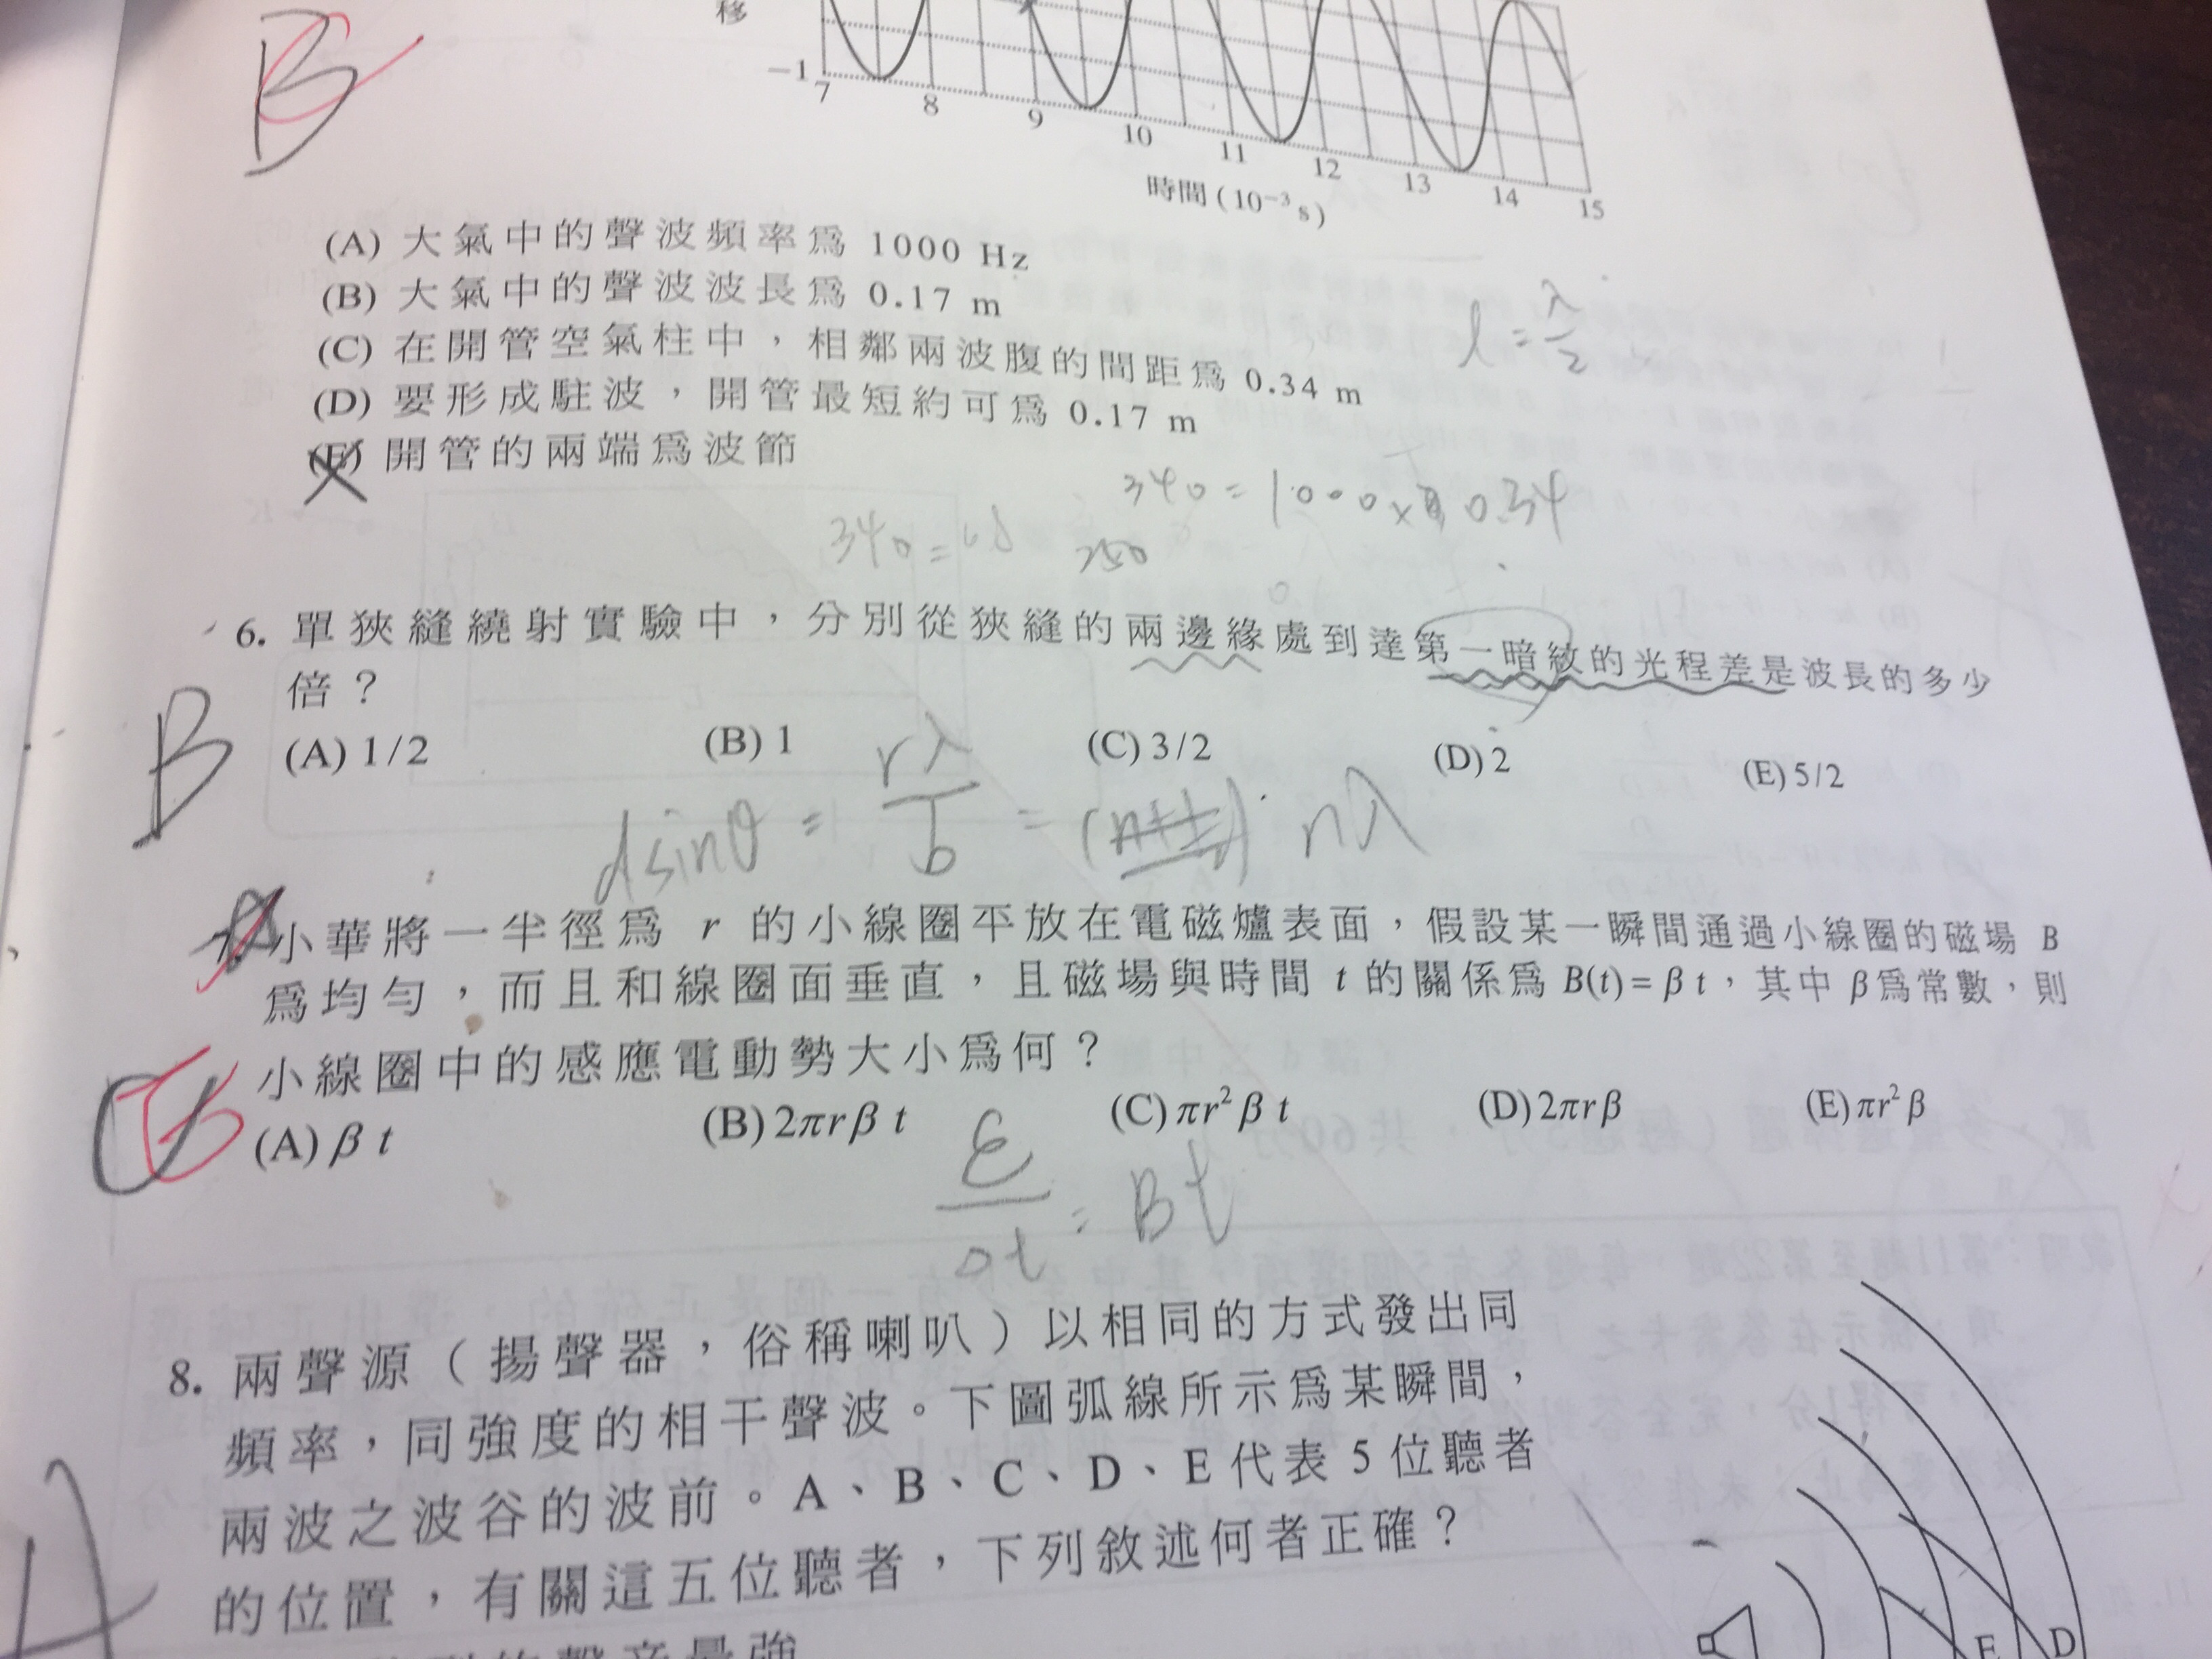 B
移
-1
7 8 9 10 11 12 13 14 15
時間(10⁻³ s)
(A) 大氣中的聲波頻率為 1000 Hz
(B) 大氣中的聲波波長為 0.17 m
(C) 在開管空氣柱中，相鄰兩波腹的間距為 0.34 m
(D) 要形成駐波，開管最短約可為 0.17 m
(E) 開管的兩端為波節
l = λ/2
340 = 1000 × 0.34
340 =
250
6. 單狹縫繞射實驗中，分別從狹縫的兩邊緣處到達第一暗紋的光程差是波長的多少
倍？
B
(A) 1/2 (B) 1 (C) 3/2 (D) 2 (E) 5/2
dsinθ = rλ/b = nλ
7. 小華將一半徑為 r 的小線圈平放在電磁爐表面，假設某一瞬間通過小線圈的磁場 B
為均勻，而且和線圈面垂直，且磁場與時間 t 的關係為 B(t) = β t，其中 β 為常數，則
小線圈中的感應電動勢大小為何？
(A) β t (B) 2πrβ t (C) πr² β t (D) 2πrβ (E) πr² β
ε/Δt = Bt
8. 兩聲源（揚聲器，俗稱喇叭）以相同的方式發出同
頻率，同強度的相干聲波。下圖弧線所示為某瞬間，
兩波之波谷的波前。A、B、C、D、E 代表 5 位聽者
的位置，有關這五位聽者，下列敘述何者正確？
A
的聲音最強
E D